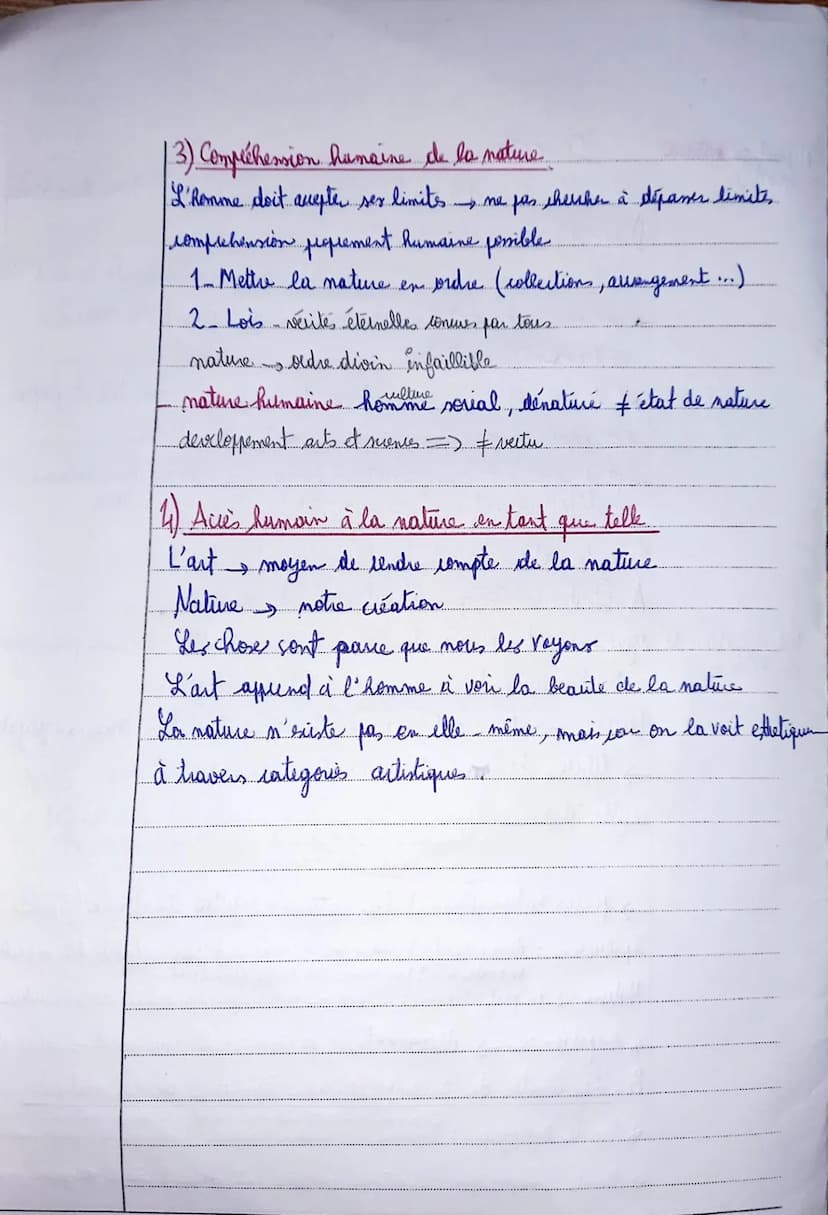 3) Compréhension humaine de la nature
L'homme doit accepter ses limites → ne pas chercher à dépasser limites
compréhension proprement humaine possible
1- Mettre la nature en ordre (collections, arrangement ...)
2- Lois - vérités éternelles connues par tous
nature → ordre divin infaillible
culture
- nature humaine homme social, dénaturé ≠ état de nature
developpement arts et sciences => ≠ vertu
4) Accès humain à la nature en tant que telle
L'art → moyen de rendre compte de la nature
Nature → notre création
Les choses sont parce que nous les voyons
L'art apprend à l'homme à voir la beauté de la nature
La nature n'existe pas en elle-même, mais car on la voit esthetiquem
à travers categories artistiques.